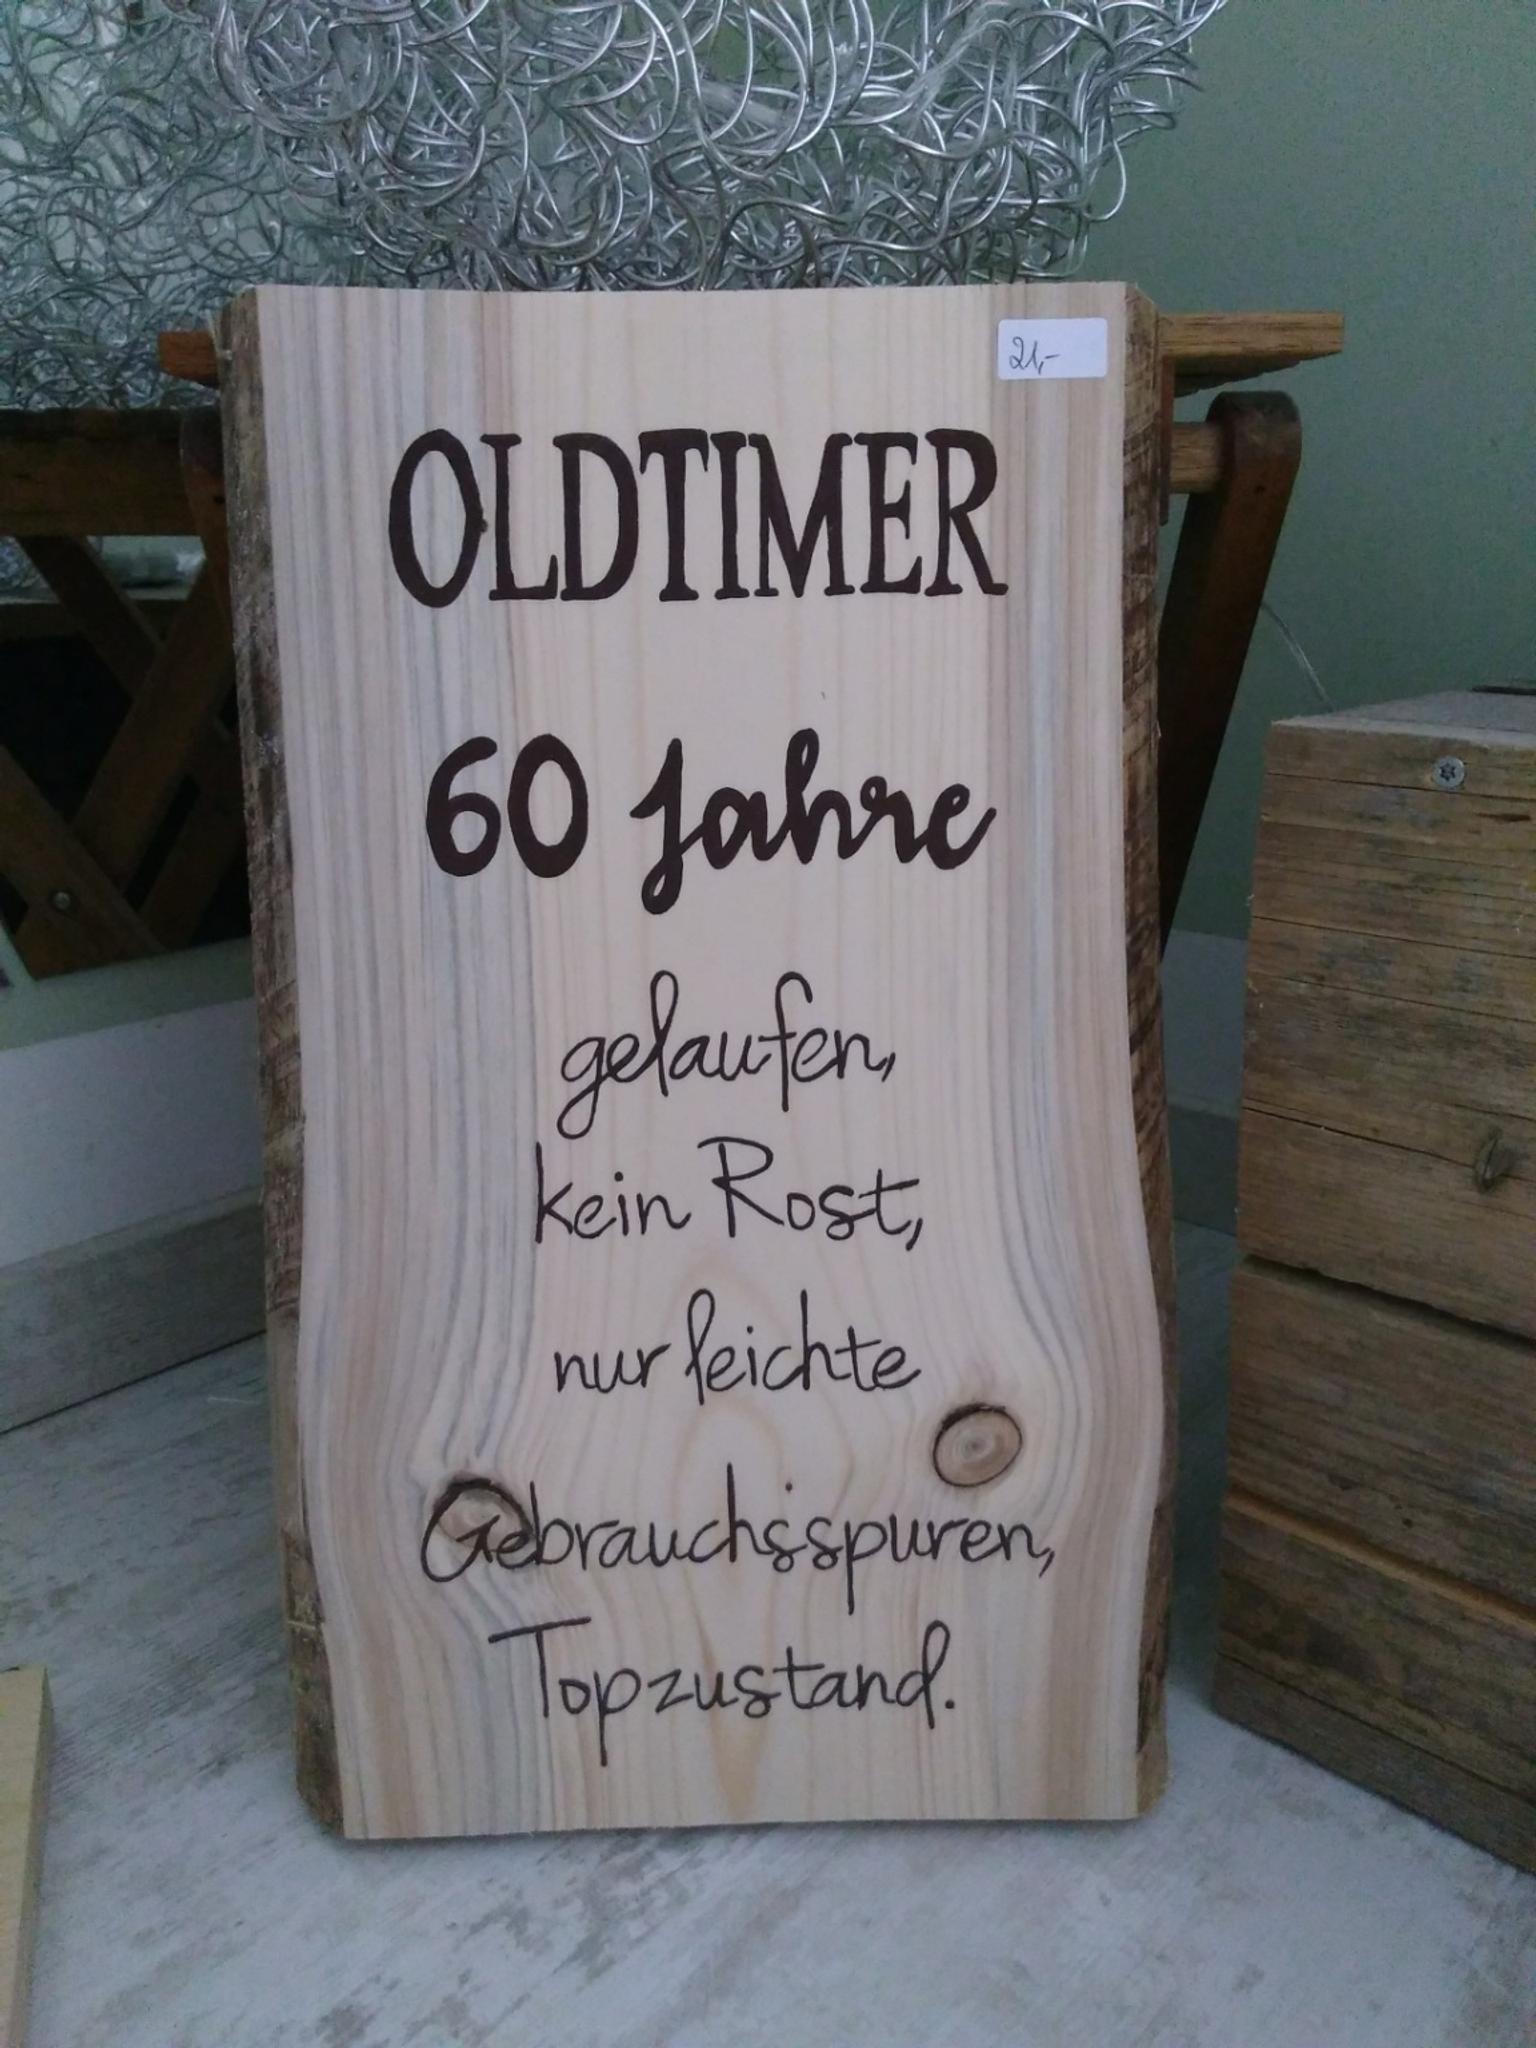 21,-
OLDTIMER
60 Jahre
gelaufen,
kein Rost,
nur leichte
Gebrauchsspuren,
Topzustand.